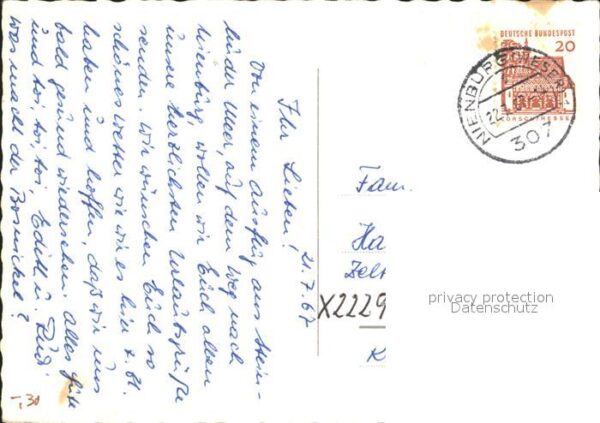 21.7.67
Ihr Lieben!
Von einem Ausflug aus Stein-
hude Meer, auf dem Weg nach
Nienburg, wollen wir Euch allen
unsere herzlichen Urlaubsgrüße
senden. Wir wünschen Euch so
schönes Wetter wie wir es hier z. Zt.
haben und hoffen, daß wir uns
bald gesund wiedersehen. Alles Gute
und toi, toi, toi, Edith u. Rudi
was macht der
DEUTSCHE BUNDESPOST
20
LORSCH/HESSEN
NIENBURG (WESER)
22.
307
Fam.
Ha
X2229
K
privacy protection
Datenschutz
-,30